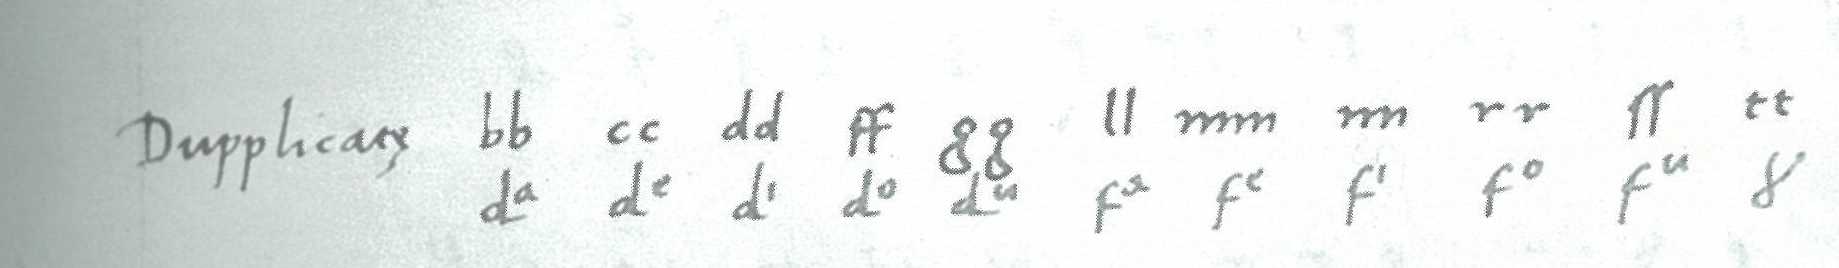 Dupplicatę bb cc dd ff gg ll mm nn rr ſſ tt
dᵃ dᵉ dⁱ dᵒ dᵘ fᵃ fᵉ fⁱ fᵒ fᵘ